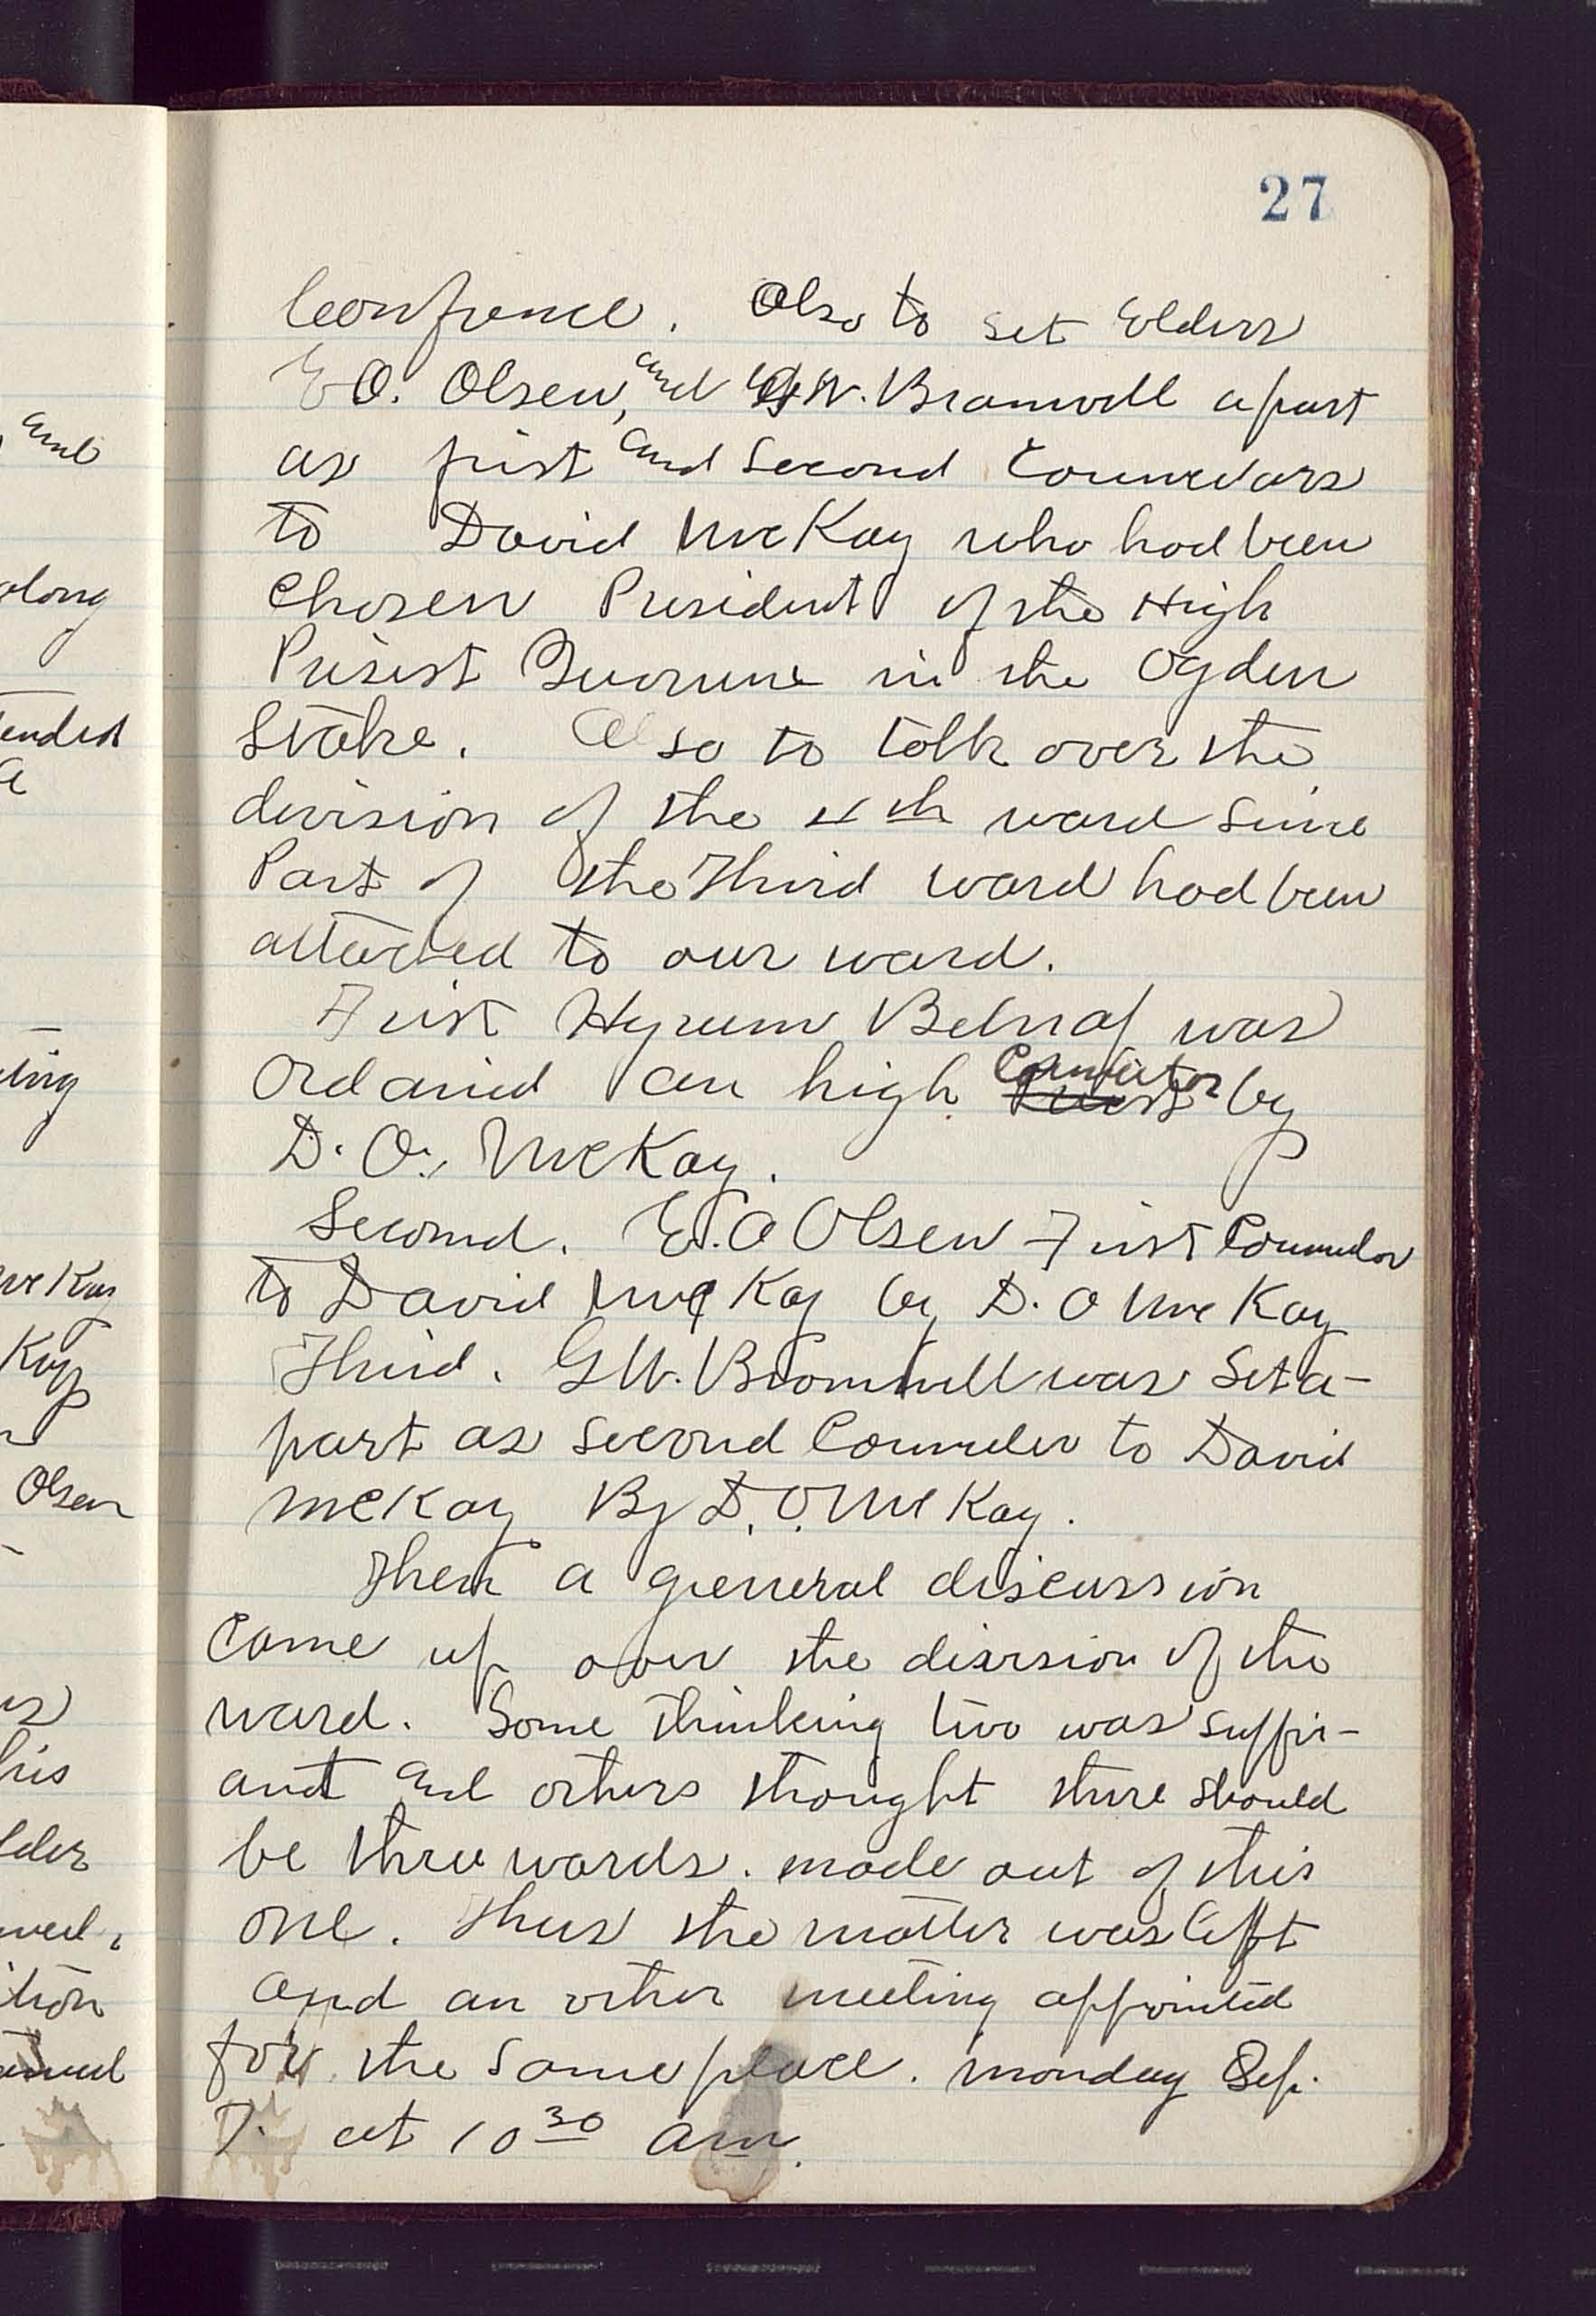 27
Confrence. Also to set Elders
E O. Olsen, and G. W. Bramwell apart
as first and Second Counselars
to David McKay who had been
Chosen President of the High
Preist Quorume in the Ogden
Stake. Also to talk over the
division of the 4th ward since
Part of the Third ward had been
attached to our ward.
First Hyrum Belnap was
Ordanied an high Counciler by
D. O. McKay.
Second. E. O Olsen First Counselor
to David McKay by D. O McKay
Third. G W. Bramwell was Set a-
part as second Counseler to David
McKay By D. O. McKay.
Then a general discussion
Came up over the division of the
ward. Some thinking two was suffic-
ant and others thought there should
be three wards. made out of this
one. Thus the matter was left
and an other meeting appointed
for the same place. Monday Sep.
7. at 10 30 am.
and
along
tended
a
ting
McKay
Kay
Olsen
his
lder
ition